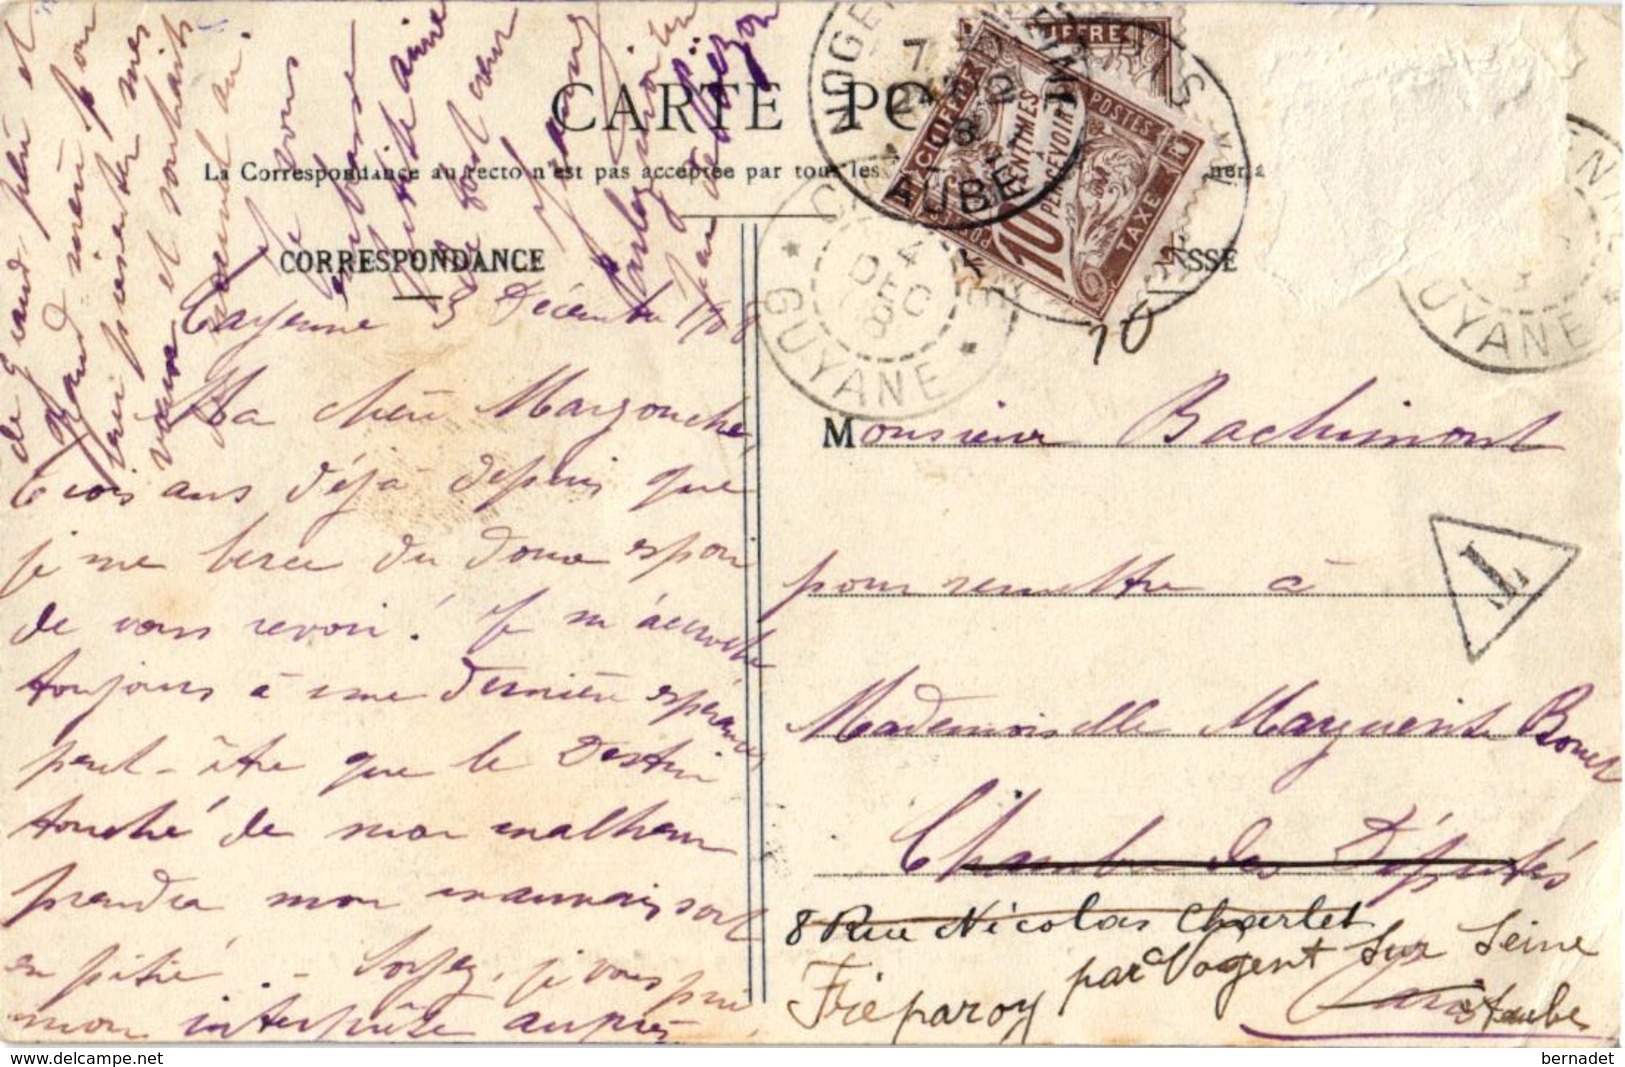 CARTE PO
La Correspondance au recto n'est pas acceptée par tous les
CORRESPONDANCE
Cayenne 3 Décembre 1908
Ma chère Margouche,
trois ans déjà depuis que
je me berce du doux espoir
de vous revoir! Je m'accroche
toujours à une dernière espérance
peut-être que le Destin
touché de mon malheur
prendra mon mauvais sort
en pitié. - Soyez, je vous prie
mon interprète auprès
de grand-père et
grand'mère pour
leur présenter mes
vœux et souhaits
de nouvel an.
Je vous
embrasse
petite amie
de tout cœur
NOGENT S
7
AUBE
CHIFFRE
CHIFFRE
10 CENTIMES
A PERCEVOIR
POSTES
TAXE
4
DEC
08
GUYANE
GUYANE
ESSE
10
T
Monsieur Bachimont
pour remettre à
Mademoiselle Marguerite Bonnet
Chambre des Députés
8 Rue Nicolas Charlet
par Nogent sur Seine
Fréparoy
Paris
Aube
bernadet